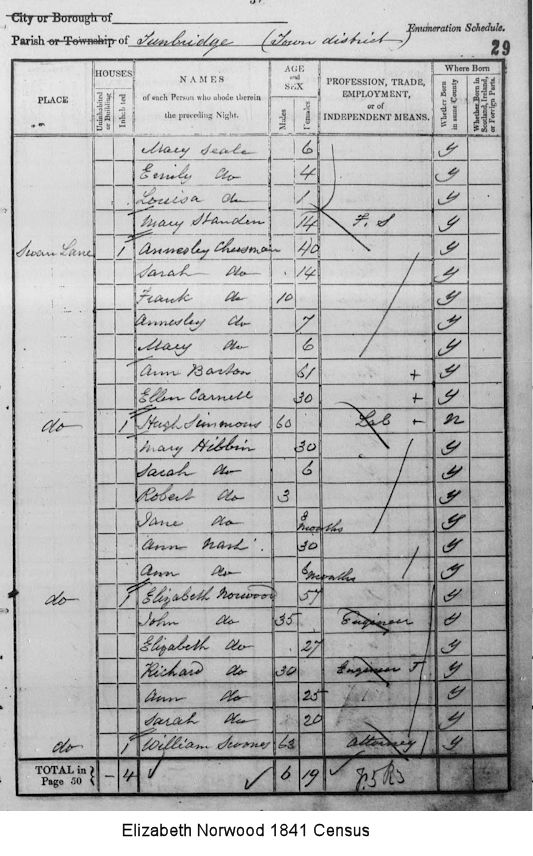 City or Borough of
Parish or Township of Tunbridge (Town district) Enumeration Schedule.
29
PLACE
HOUSES
Uninhabited or Building
Inhabited
NAMES
of each Person who abode therein
the preceding Night.
AGE
and
SEX
Males
Females
PROFESSION, TRADE,
EMPLOYMENT,
or of
INDEPENDENT MEANS.
Where Born
Whether Born in same County
Whether Born in Scotland, Ireland, or Foreign Parts.
Mary Seale 6 y
Emily do 4 y
Louisa do 1 y
Mary Standen 14 F. S y
Swan Lane 1 Annesley Cheesman 40 y
Sarah do 14 y
Frank do 10 y
Annesley do 7 y
Mary do 6 y
Ann Barton 61 + y
Ellen Carnell 30 + y
do 1 Hugh Simmons 60 Lab + n
Mary Hibbin 30 y
Sarah do 6 y
Robert do 3 y
Jane do 3 months y
Ann Nash 30 y
Ann do 6 months y
do 1 Elizabeth Norwood 57 y
John do 35 Engineer y
Elizabeth do 27 y
Richard do 30 Engineer J y
Ann do 25 y
Sarah do 20 y
do 1 William Scoones 63 Attorney y
TOTAL in
Page 50 – 4 6 19
Elizabeth Norwood 1841 Census